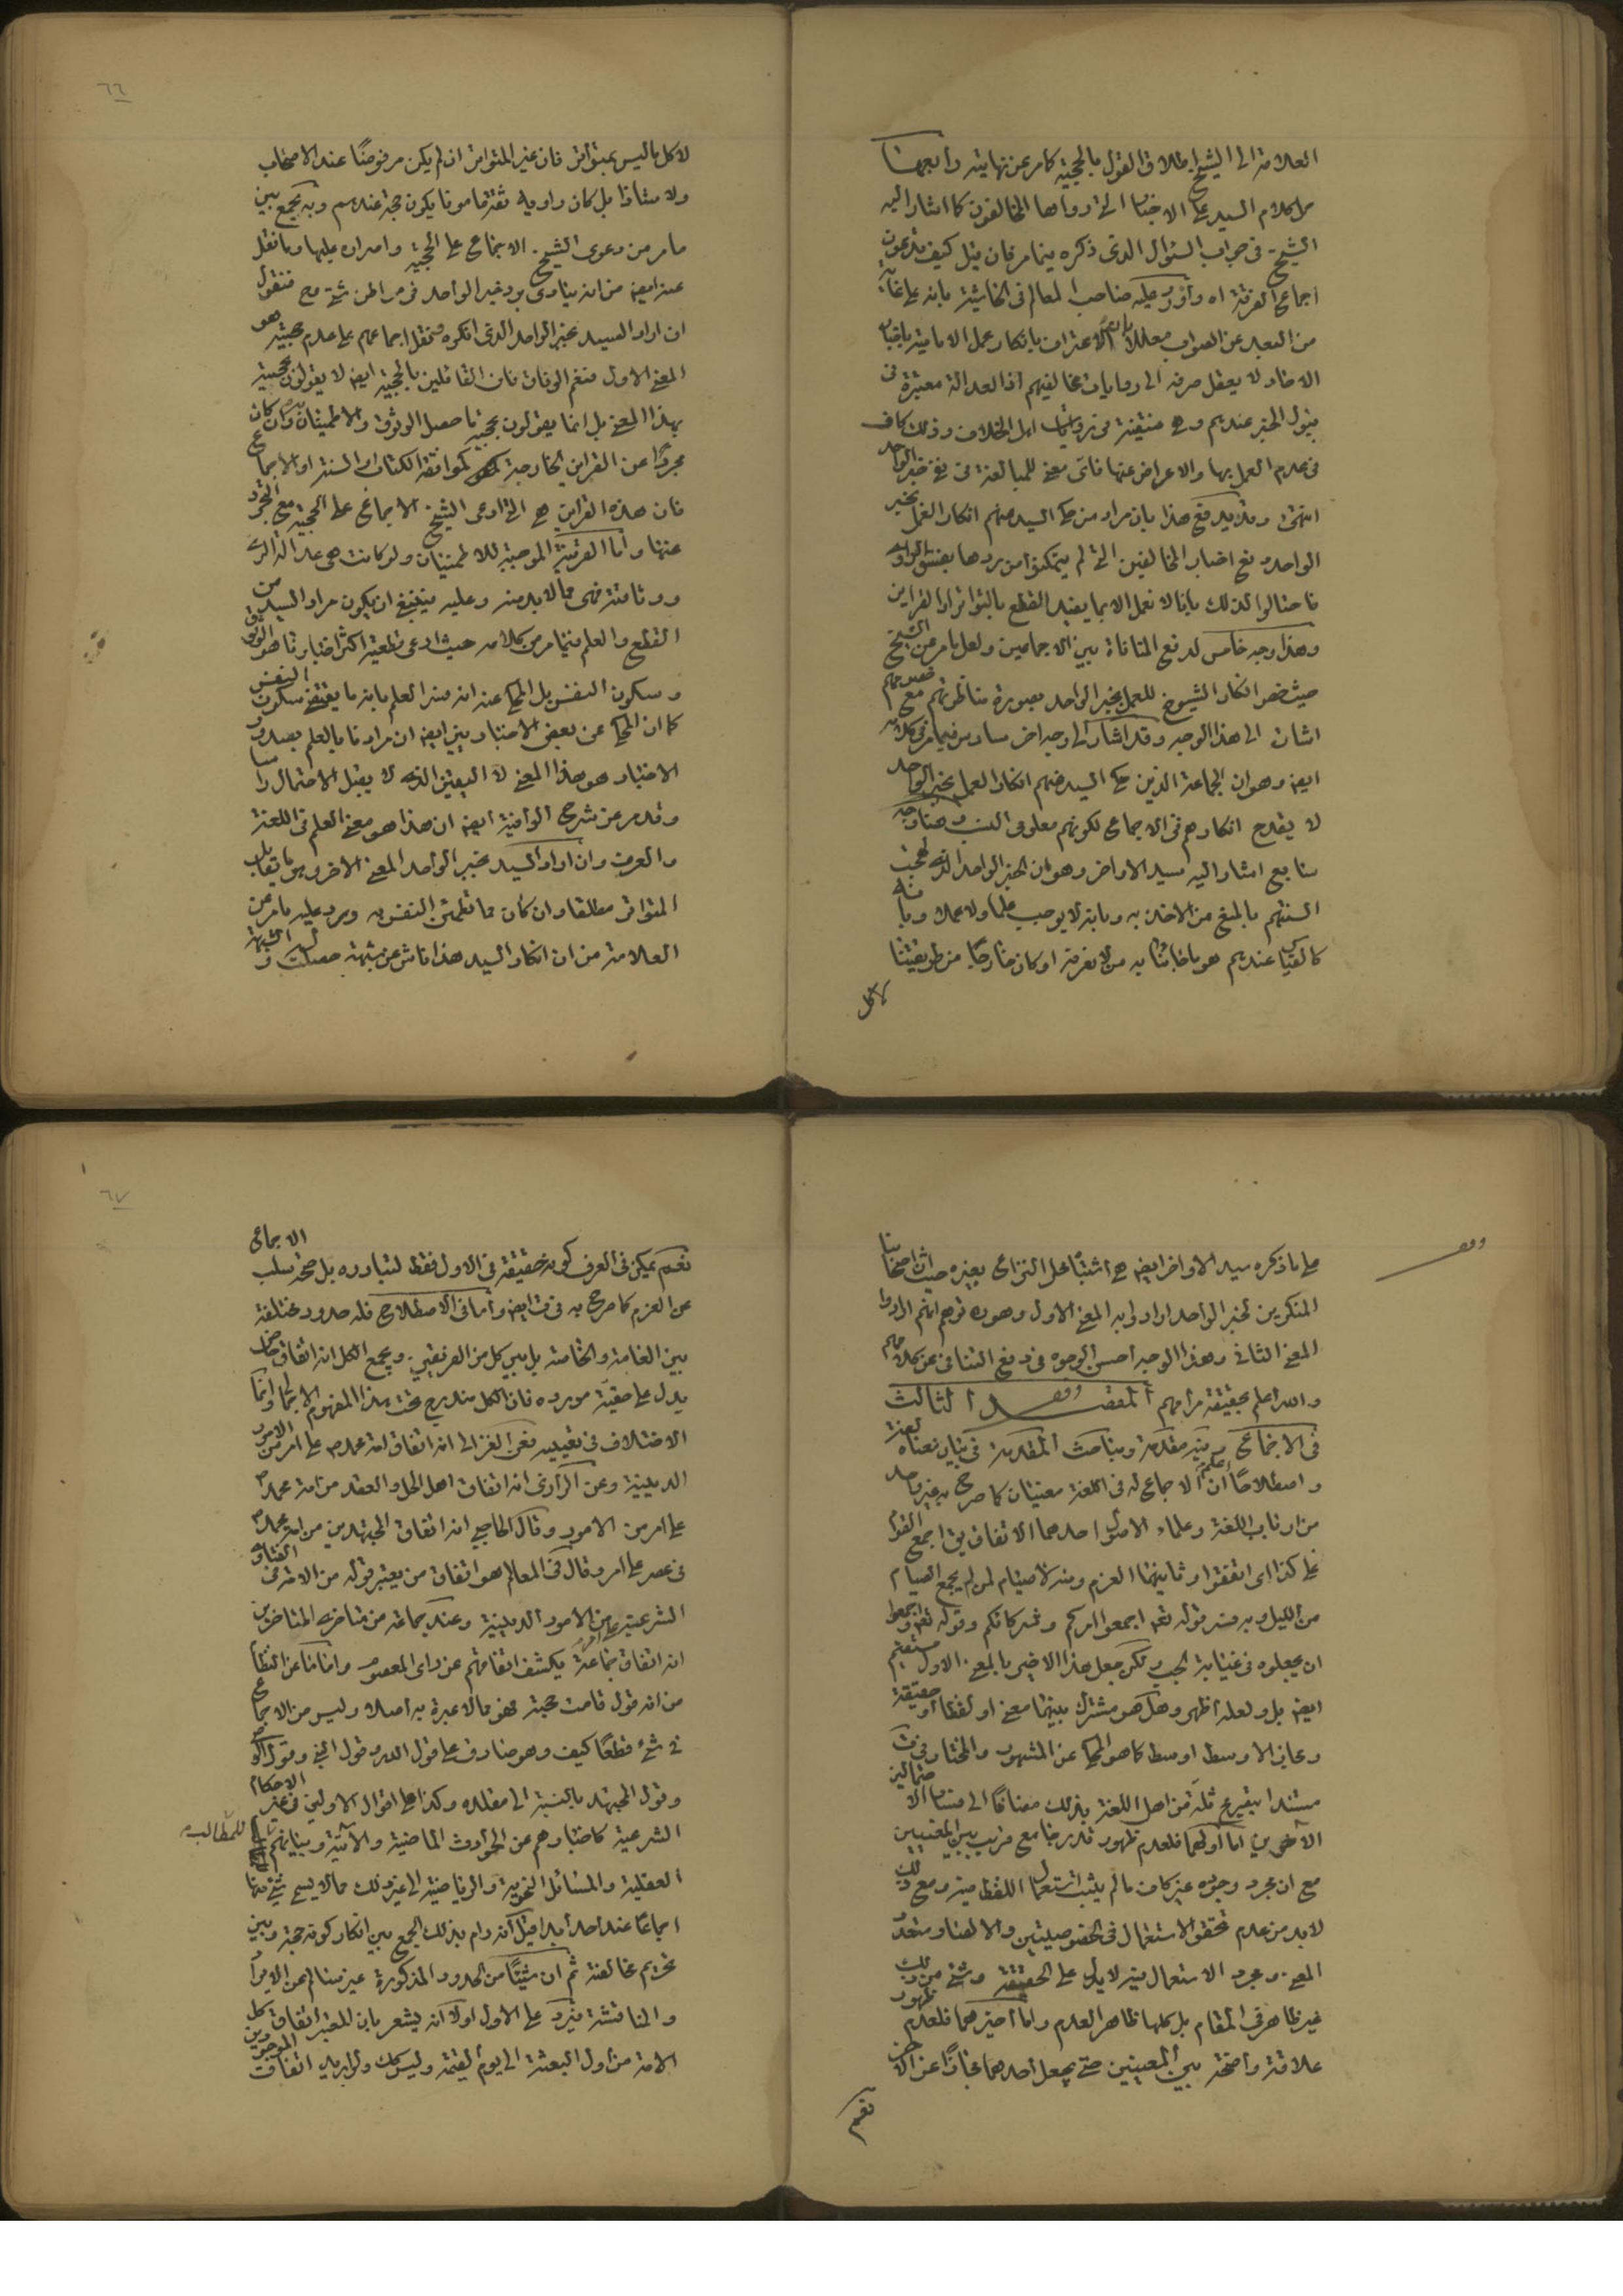 العلامة الى الشيخ اطلاق القول بالحجية كامر عن نهايته ورابعها
كلام السيد على الاخبار التى رواها المخالفون كما اشار اليه
الشيخ فى جواب السئوال الذى ذكره فيما مر فان قيل كيف تدعون
اجماع الفرقة اه واورد عليه صاحب المعالم فى الحاشية بانه على غاية
من البعد عن الصواب معللا بان الاعتراف بانكار عمل الامامية باخبار
الاحاد لا يعقل صرفه الى روايات مخالفيهم اذ العدالة معتبرة فى
قبول الخبر عندهم وهى منتفية فى روايات اهل الخلاف وذلك كاف
فى عدم العمل بها والاعراض عنها فاى معنى للمبالغة فى نفى خبر الواحد
انتهى وقد يدفع هذا بان مراد من حكى السيد عنهم انكار العمل بخبر
الواحد دفع اخبار المخالفين التى لم يتمكنوا من ردها بفسق الراوى
فاحتالوا لذلك بانا لا نعمل الا بما يفيد القطع بالتواتر او القراين
وهذا وجه خامس لدفع المنافاة بين الاجماعين ولعل ما مر عن الشيخ
حيث خص انكار الشيوخ للعمل بخبر الواحد بصورة مناظرتهم مع خصومهم
اشارة الى هذا الوجه وقد اشار الى وجه اخر سادس فيما مر فى كلامه
ايضا وهو ان الجماعة الذين حكى السيد عنهم انكار العمل بخبر الواحد
لا يقدح انكارهم فى الاجماع لكونهم معلومى النسب وهنا وجه
سابع اشار اليه سيد الاواخر وهو ان الخبر الواحد الذى لهجت
السنتهم بالمنع من الاخذ به وبانه لا يوجب علما ولا عملا وبانه
كالقياس عندهم هو ما خابرنا به من لا نعرفه او كان خارجا من طريقتنا
لا كل
٦٦
لا كل ما ليس بمتواتر فان غير المتواتر ان لم يكن مرفوضا عند الاصحاب
ولا شاذا بل كان راويه ثقة مامونا يكون حجة عندهم وبه يجمع بين
ما مر من دعوى الشيخ الاجماع على الحجية واصراره عليها وما نقل
عنه ايضا من انه ينادى برد خبر الواحد فى مواطن شتى وح فنقول
ان اراد السيد بخبر الواحد الذى انكره ونقل اجماعهم على عدم حجيته هو
المعنى الاول فنعم الوفاق فان القائلين بالحجية ايضا لا يقولون بحجية
بهذا المعنى بل انما يقولون بحجية ما حصل الوثوق والاطمينان به وان كان
مجردا عن القراين الخارجة كموافقة الكتاب او السنة او الاجماع
فان هذه القراين هى التى ادعى الشيخ الاجماع على الحجية مع التجرد
عنها واما القرينة الموجبة للاطمينان ولو كانت هى عدالة الراوى
ووثاقته فهى مما لا بد منه وعليه ينبغى ان يكون مراد السيد من
القطع والعلم فيما مر من كلامه حيث ادعى قطعية اكثر اخبارنا هو الوثوق
وسكون النفس بل المحكى عنه انه فسر العلم بانه ما يقتضى سكون النفس
كما ان المحكى عن بعض الاخباريين ايضا ان مرادنا بالعلم بصدور
الاخبار هو هذا المعنى لا اليقين الذى لا يقبل الاحتمال راسا
وقد مر عن شرح الوافية ايضا ان هذا هو معنى العلم فى اللغة
والعرف وان اراد السيد بخبر الواحد المعنى الاخر وهو ما يقابل
المتواتر مطلقا وان كان مما تطمئن النفس به ويرد عليه ما مر عن
العلامة من ان انكار السيد هذا ناش عن شبهة حصلت له والشبهة
وقف
على ما ذكره سيد الاواخر ايضا هى اشتباه محل النزاع بغيره حيث ان اصحابنا
المنكرين لخبر الواحد ارادوا به المعنى الاول وهو ره توهم انهم ارادوا
المعنى الثانى وهذا الوجه احسن الوجوه فى دفع التنافى عن كلامهم
والله اعلم بحقيقة مرامهم المقصد الثالث
فى الاجماع وفيه مقدمة ومباحث المقدمة فى بيان معناه لغة
واصطلاحا اعلم ان الاجماع له فى اللغة معنيان كما صرح به غير واحد
من ارباب اللغة وعلماء الاصول احدهما الاتفاق يق اجمع القوم
على كذا اى اتفقوا وثانيهما العزم ومنه لا صيام لمن لم يجمع الصيام
من الليل وبه فسر قوله تعم اجمعوا امركم وشركائكم وقوله تعم واجمعوا
ان يجعلوه فى غيابة الجب ولكن جعل هذا الاخير بالمعنى الاول مستقيم
ايضا بل ولعله اظهر وهل هو مشترك بينهما معنى او لفظا او حقيقة
ومجاز الاوسط اوسط كما هو المحكى عن المشهور والمختار فى ف
مستندا بتصريح ثلة من اهل اللغة بذلك مضافا الى فساد الاحتمالين
الاخرين اما اولهما فلعدم ظهور قدر جامع قريب بين المعنيين
مع ان مجرد وجوده غير كاف ما لم يثبت استعمال اللفظ فيه ومع ذلك
لا بد من عدم تحقق الاستعمال فى الخصوصيتين والا لصار متعدد
المعنى ومجرد الاستعمال فيه لا يدل على الحقيقة وشئ من ذلك
غير ظاهر فى المقام بل كلها ظاهر العدم واما اخيرهما فلعدم ظهور
علاقة واضحة بين المعنيين حتى يجعل احدهما مجازا عن الاخر
نعم
٦٧
نعم يمكن فى العرف كونه حقيقة فى الاول فقط لتبادره بل صحة سلب الاجماع
عن العزم كما صرح به فى ف ايضا واما فى الاصطلاح فله حدود مختلفة
بين العامة والخاصة بل بين كل من الفريقين ويجمع الكل انه اتفاق خاص
يدل على حقية مورده فان الكل مندرج تحت هذا المفهوم الاجمالى وانما
الاختلاف فى تعيينه فعن الغزالى انه اتفاق امة محمد ص على امر من الامور
الدينية وعن الرازى انه اتفاق اهل الحل والعقد من امة محمد ص
على امر من الامور وقال الحاجبى انه اتفاق المجتهدين من امة محمد ص
فى عصر على امر وقال فى المعالم هو اتفاق من يعتبر قوله من الامة فى الفتاوى
الشرعية على امر من الامور الدينية وعند جماعة من متاخرى المتاخرين
انه اتفاق جماعة يكشف اتفاقهم عن راى المعصوم واما ما عن النظام
من انه قول قامت حجته فهو مما لا عبرة به اصلا وليس من الاجماع
فى شئ قطعا كيف وهو صادق على قول الله وقول النبى وقول الامام
وقول المجتهد بالنسبة الى مقلده وكذا على اقوال الاولين فى غير الاحكام
الشرعية كاخبارهم عن الحوادث الماضية والاتية وبياناتهم للمطالب
العقلية والمسائل النحوية والرياضية الى غير ذلك مما لا يسمى شئ منها
اجماعا عند احد ابدا قيل انه رام بذلك الجمع بين انكار كونه حجة وبين
تحريم مخالفته ثم ان شيئا من الحدود المذكورة غير سالم عن الايراد
والمناقشة فيرد على الاول اولا انه يشعر بان المعتبر اتفاق كل
الامة من اول البعثة الى يوم القيمة وليس كك ولو اريد اتفاق الموجودين